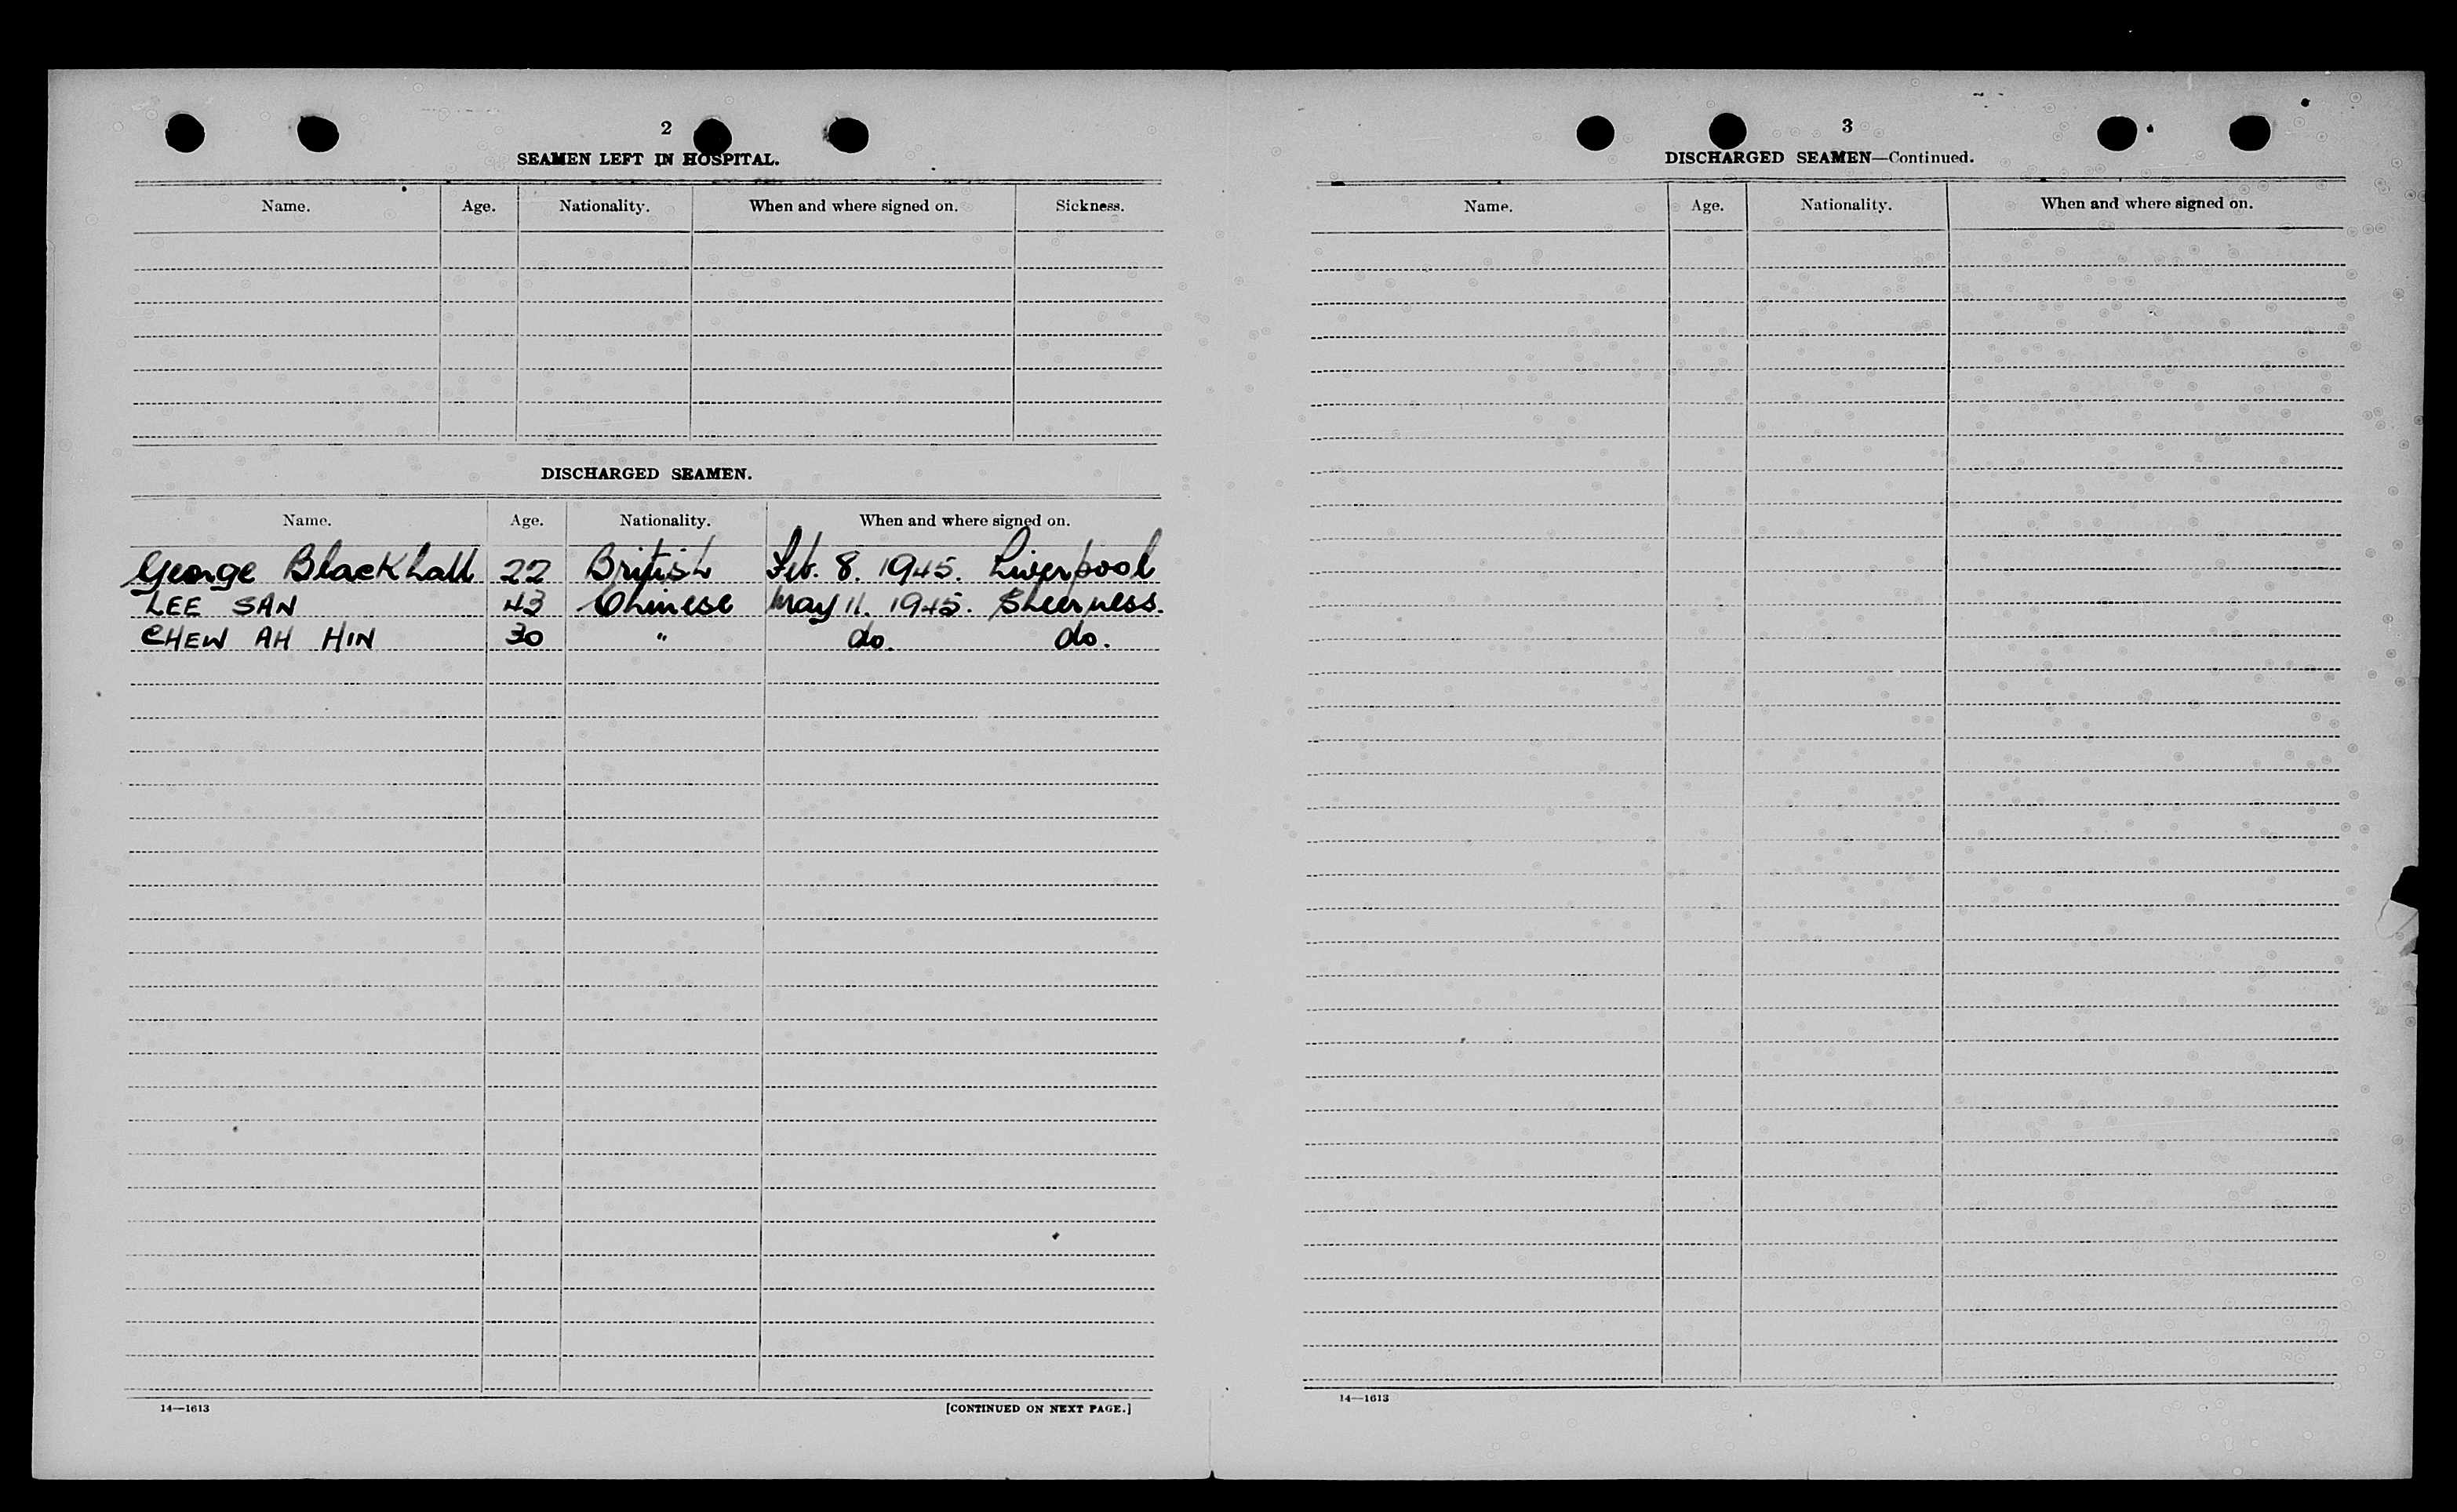 2
SEAMEN LEFT IN HOSPITAL.
Name. Age. Nationality. When and where signed on. Sickness.
DISCHARGED SEAMEN.
Name. Age. Nationality. When and where signed on.
George Blackhall 22 British Feb. 8. 1945. Liverpool
LEE SAN 43 Chinese May 11. 1945. Sheerness.
CHEW AH HIN 30 " do. do.
14—1613 [CONTINUED ON NEXT PAGE.]
3
DISCHARGED SEAMEN—Continued.
Name. Age. Nationality. When and where signed on.
14—1613